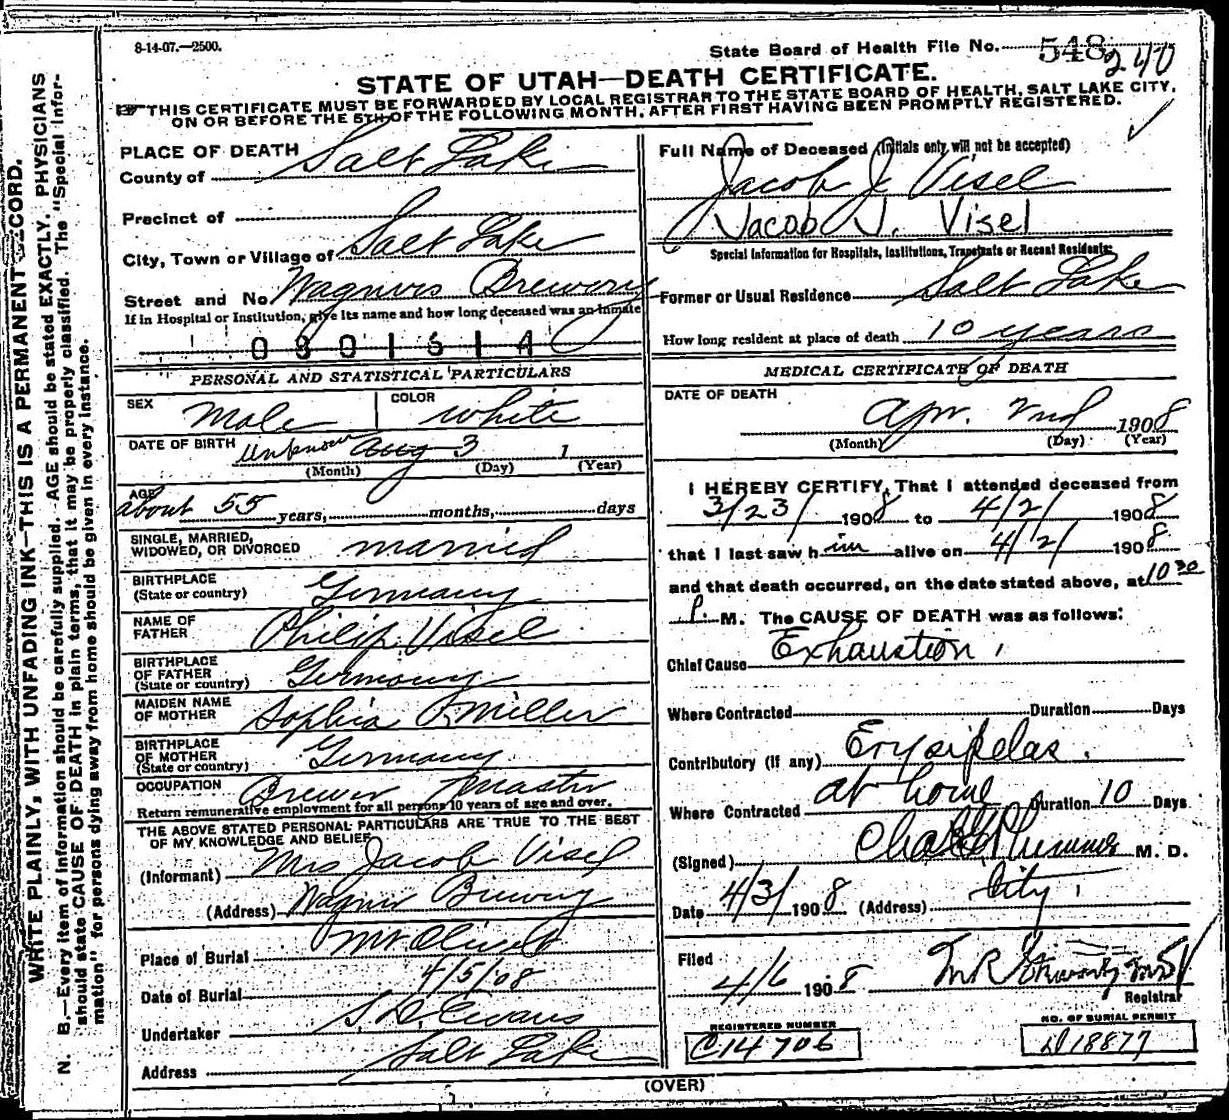 8-14-07.—2500.
State Board of Health File No. 548 240
STATE OF UTAH—DEATH CERTIFICATE.
THIS CERTIFICATE MUST BE FORWARDED BY LOCAL REGISTRAR TO THE STATE BOARD OF HEALTH, SALT LAKE CITY,
ON OR BEFORE THE 5TH OF THE FOLLOWING MONTH, AFTER FIRST HAVING BEEN PROMPTLY REGISTERED.
WRITE PLAINLY, WITH UNFADING INK—THIS IS A PERMANENT RECORD.
N. B.—Every item of information should be carefully supplied. AGE should be stated EXACTLY. PHYSICIANS
should state CAUSE OF DEATH in plain terms, that it may be properly classified. The "Special Infor-
mation" for persons dying away from home should be given in every instance.
PLACE OF DEATH
County of Salt Lake
Precinct of
City, Town or Village of Salt Lake
Street and No Wagners Brewery
If in Hospital or Institution, give its name and how long deceased was an inmate
0801614
PERSONAL AND STATISTICAL PARTICULARS
SEX Male COLOR white
DATE OF BIRTH unknown Aug 3 1
(Month) (Day) (Year)
AGE about 55 years, months, days
SINGLE, MARRIED,
WIDOWED, OR DIVORCED married
BIRTHPLACE
(State or country) Germany
NAME OF
FATHER Philip Visel
BIRTHPLACE
OF FATHER
(State or country) Germany
MAIDEN NAME
OF MOTHER Sophia Miller
BIRTHPLACE
OF MOTHER
(State or country) Germany
OCCUPATION Brewer Master
Return remunerative employment for all persons 10 years of age and over.
THE ABOVE STATED PERSONAL PARTICULARS ARE TRUE TO THE BEST
OF MY KNOWLEDGE AND BELIEF
(Informant) Mrs Jacob Visel
(Address) Wagner Brewery
Place of Burial Mt Olivet
Date of Burial 4/5/08
Undertaker S. D. Evans
Address Salt Lake
Full Name of Deceased (Initials only will not be accepted)
Jacob J Visel
Jacob J. Visel
Special Information for Hospitals, Institutions, Transients or Recent Residents:
Former or Usual Residence Salt Lake
How long resident at place of death 10 years
MEDICAL CERTIFICATE OF DEATH
DATE OF DEATH
Apr. 2nd 1908
(Month) (Day) (Year)
I HEREBY CERTIFY, That I attended deceased from
3/23/ 1908 to 4/2/ 1908
that I last saw him alive on 4/2/ 1908
and that death occurred, on the date stated above, at 10 30
P. M. The CAUSE OF DEATH was as follows:
Chief Cause Exhaustion.
Where Contracted Duration Days
Contributory (if any) Erysipelas.
Where Contracted at home Duration 10 Days
(Signed) Plummer M. D.
Date 4/3/ 1908 (Address) City.
Filed
4/6 1908
Registrar
REGISTERED NUMBER
C14706
NO. OF BURIAL PERMIT
D18877
(OVER)